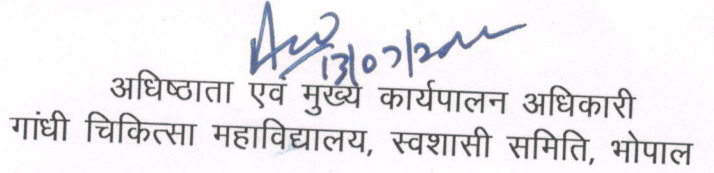 13/07/20
अधिष्ठाता एवं मुख्य कार्यपालन अधिकारी
गांधी चिकित्सा महाविद्यालय, स्वशासी समिति, भोपाल